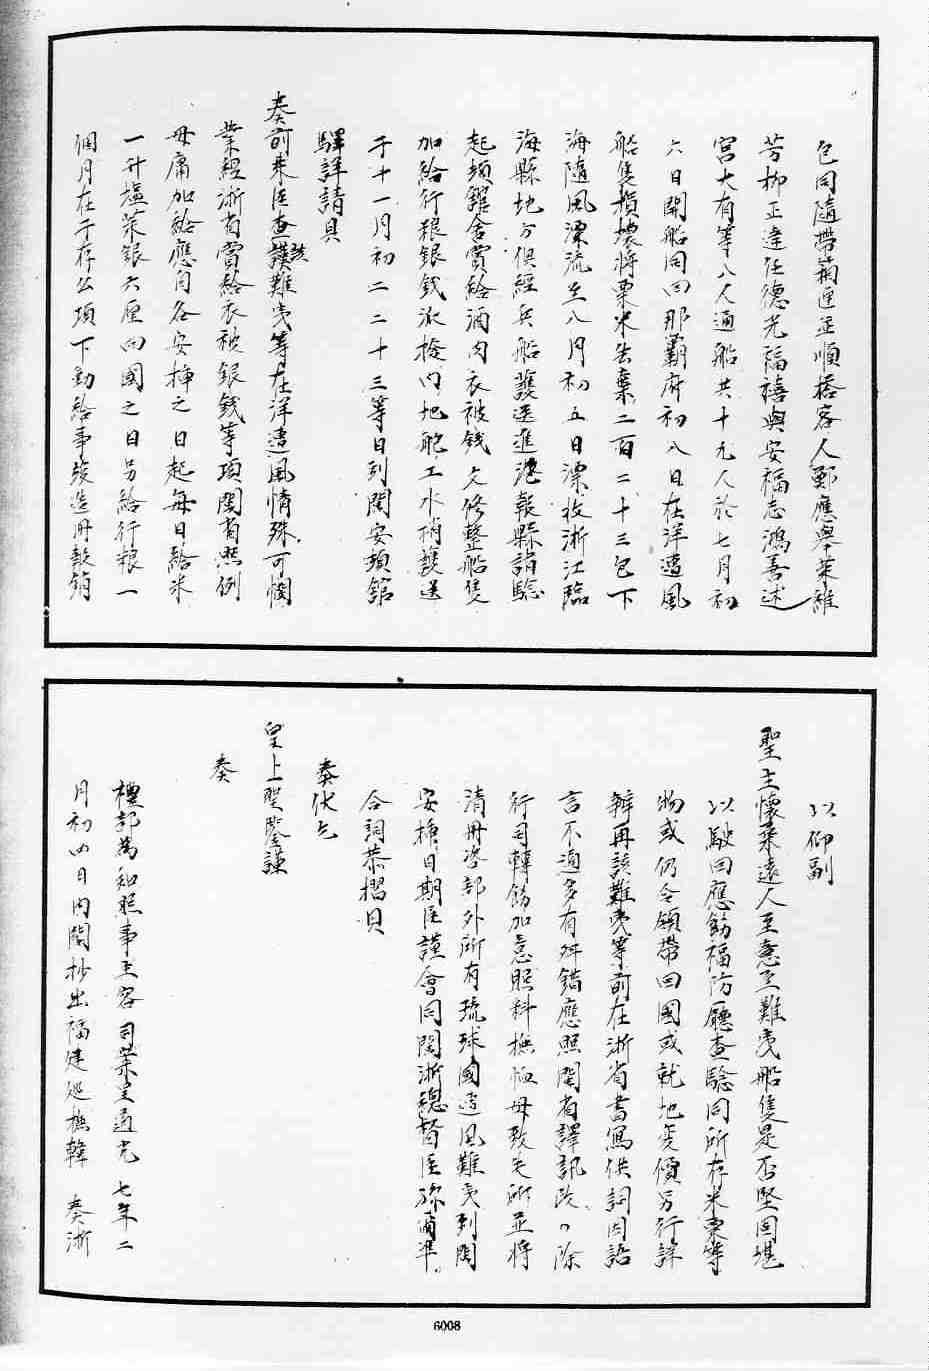 包同隨帶菊運並順搭客人鄭應舉葉維
芳柳正達任德光福禧與安福志鴻善述
宮大有等八人通船共十九人於七月初
六日開船同回那霸府初八日在洋遭風
船隻損壞將粟米告棄二百二十三包下
海隨風漂流至八月初五日漂收浙江臨
海縣地方俱經兵船護送進港報縣詣驗
起頓館舍賞給酒肉衣被錢文修整船隻
加給行粮銀錢派撥內地舵工水梢護送
于十一月初二二十三等日到閩安頓館
驛詳請具
奏前來臣查該難夷等在洋遭風情殊可憫
業經浙省賞給衣被銀錢等項閩省照例
毋庸加給應自各安揷之日起每日給米
一升塩菜銀六厘回國之日另給行粮一
個月在于存公項下動給事竣造冊報銷
以仰副
聖主懷柔遠人至意至難夷船隻是否堅固堪
以駛回應飭福防廳查驗同所存米粟等
物或仍令領帶回國或就地變價另行詳
辦再該難夷等前在浙省書寫供詞因語
言不通多有舛錯應照閩省譯訊改除
行司轉飭加意照料撫恤毋致失所並將
清冊咨部外所有琉球國遭風難夷到閩
安揷日期臣謹會同閩浙總督臣孫爾準
合詞恭摺具
奏伏乞
皇上聖鑒謹
奏
禮部為知照事主客司案呈道光七年二
月初四日內閣抄出福建巡撫韓 奏浙
6008